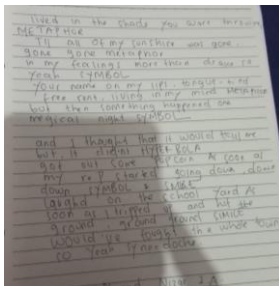 lived in the shade you were throwing
METAPHOR
Til all of my sunshine was gone,
gone gone metaphor
in my feelings more than drake so
yeah SYMBOL
Your name on my lips, tongue-
free rent, living in my mind METAPHOR
but then something happened one
magical night SYMBOL
and I thought that it would kill me
but it didnt HYPERBOLA
got out some popcorn As soon as
my rep started going down, down
down SYMBOL & SIMILE
laughed on the school yard As
soon as I tripped up and hit the
ground, ground ground SIMILE
would've fought the whole town
so yeah Synecdoche